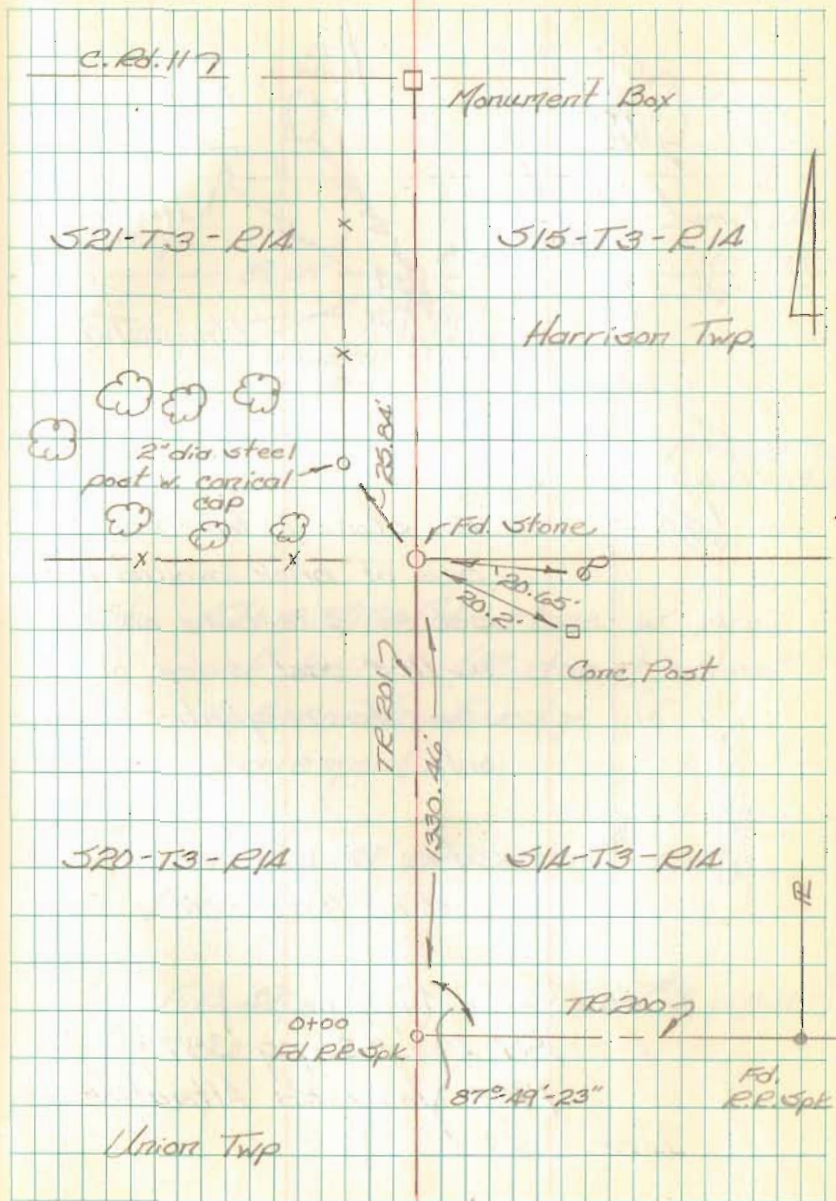 C. Rd. 11
Monument Box
S21-T3-R14
S15-T3-R14
Harrison Twp.
25.84'
2" dia. steel
post w. conical
cap
Fd. Stone
20.65'
20.2'
Conc. Post
TR 201
1330.46'
S20-T3-R14
S14-T3-R14
PL
TR 200
0+00
Fd. R.R. Spk
87°-49'-23"
Fd.
R.R. Spk
Union Twp